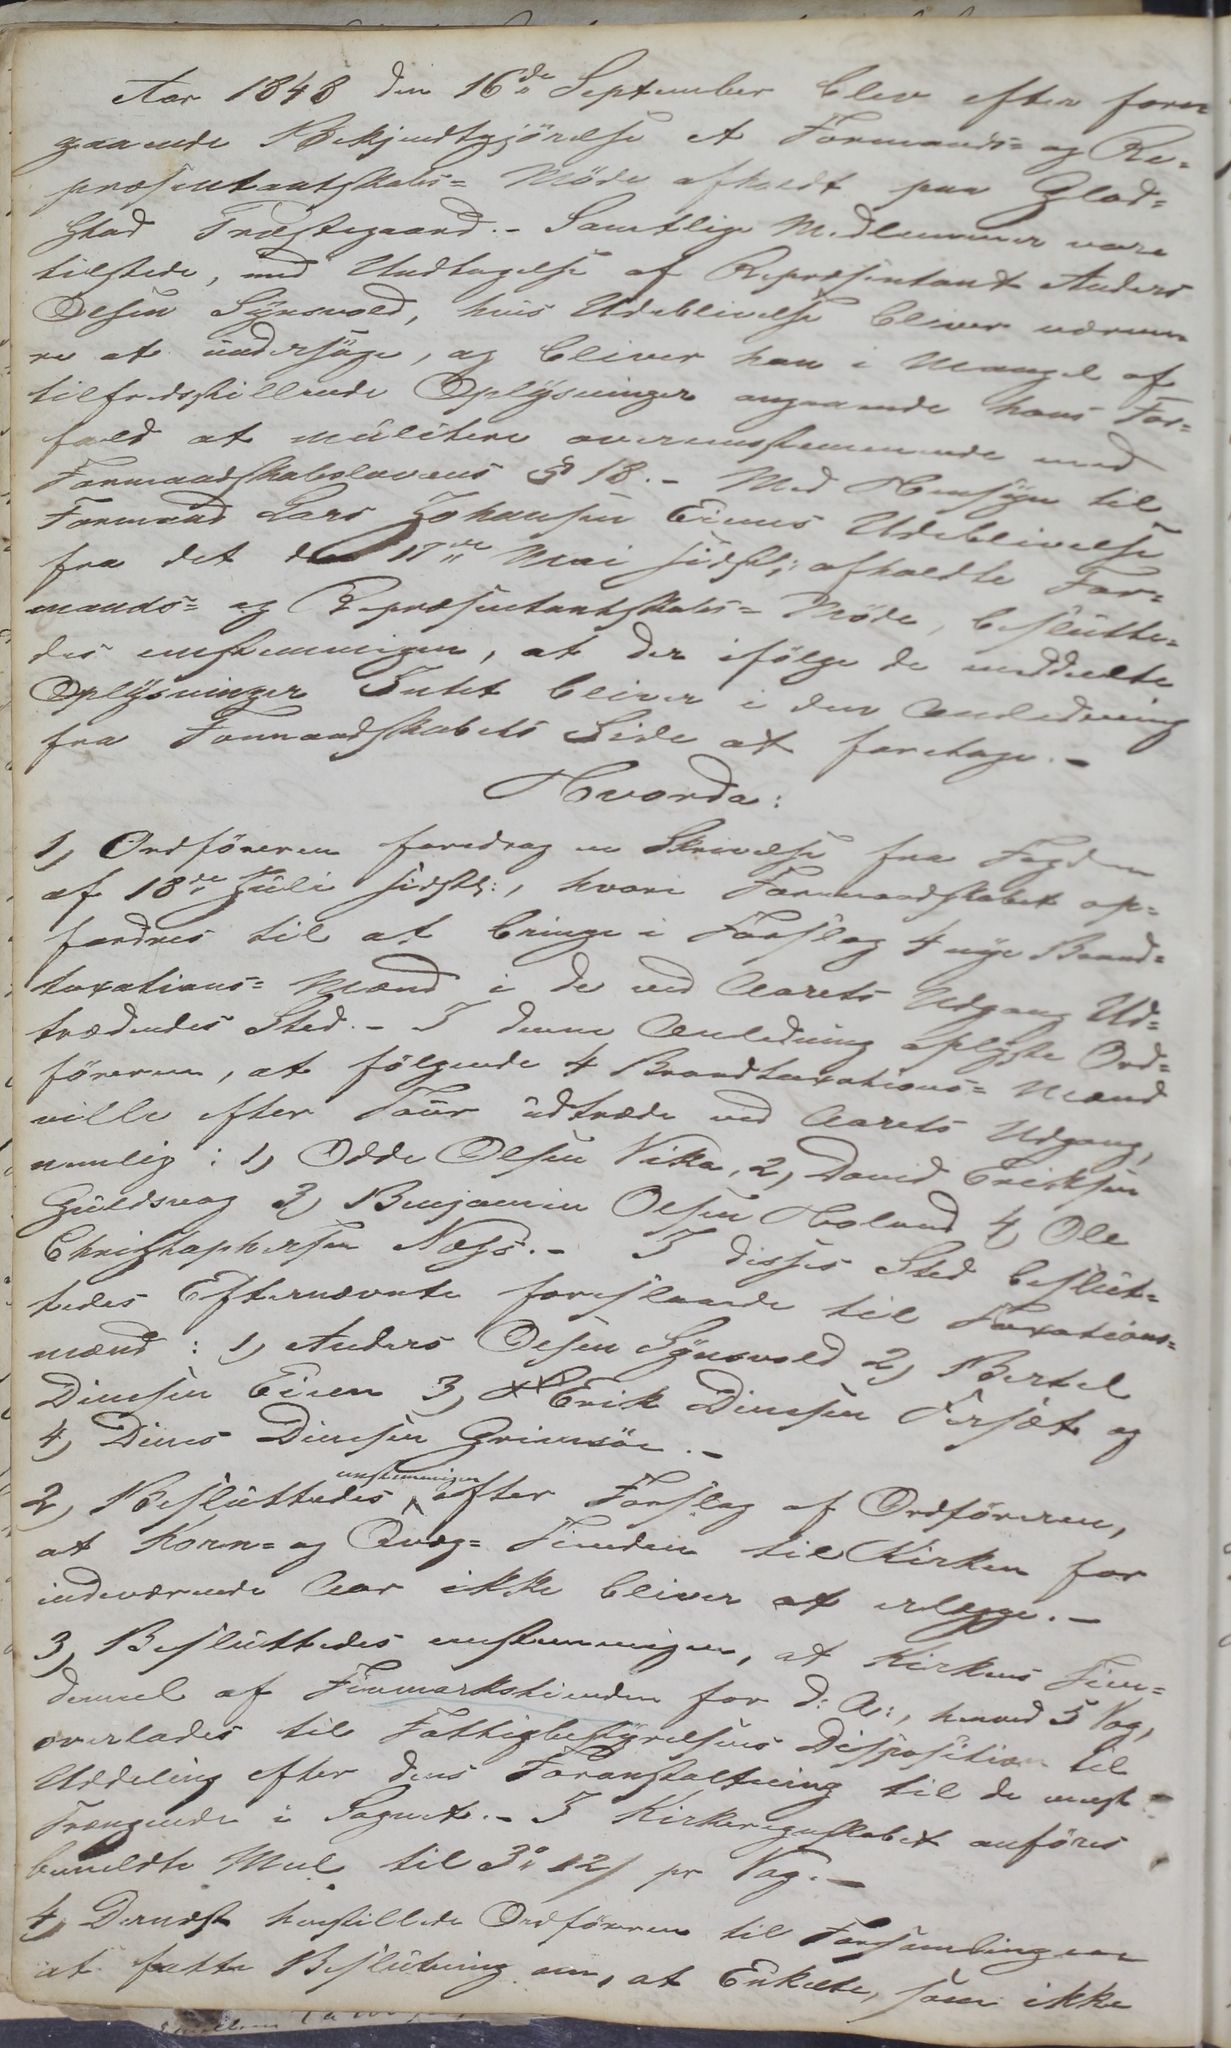 Aar 1848 den 16de September blev efter fore-
gaaende Bekjendtgjörelse et Formands= og Re-
præsentantskabs= Möde afholdt paa Glad=
stad Præstegaard. - Samtlige Medlemmer vare
tilstede, med Undtagelse af Repræsentant Anders
Olsen Synsvold, hvis Udeblivelse bliver nærme-
re at undersöge, og bliver han i Mangel af
tilfredsstillende Oplysninger angaaende hans For=
fald at mulctere overensstemmende med
Formandskabslovens § 18. - Med Hensyn til
Formand Lars Johansen Eines Udeblivelse
fra det den 17de Mai sidstl: afholdte For=
mands= og Repræsentantskabs= Möde, beslutte-
des eenstemmigen, at der ifölge de meddeelte
Oplysninger Intet bliver i den Anledning
fra Formandskabets Side at foretage. -
Hvorda:
1, Ordföreren foredrog en Skrivelse fra Fogden
af 18de Juli sidstl:, hvori Formandskabet op=
fordres til at bringe i Forslag 4 nye Brand=
taxations= Mænd i de ved Aarets Udgang Ud=
trædendes Sted. - I denne Anledning oplyste Ord=
föreren, at fölgende 4 Brandtaxations= Mænd
ville efter Tour udtræde ved Aarets Udgang,
nemlig: 1, Odde Olsen Vika, 2, David Eriksen
Guldsvog 3, Benjamin Olsen Holand 4, Ole
Christophersen Næss. - I disses Sted beslut=
tedes Efternævnte foreslaaede til Taxations=
mænd: 1, Anders Olsen Synsvold 2, Bertel
Dinesen Eiien 3, Erik Dinesen Forsæt og
4, Dines Dinesen Grimsöe. -
2, Besluttedes eenstemmigen efter Forslag af Ordföreren,
at Korn= og Qvæg= Tienden til Kirken for
indeværende Aar ikke bliver at erlægge. -
3, Besluttedes eenstemmigen, at Kirkens Tien=
demeel af Finmarkstienden for d: A:, henved 5 Vog,
overlades til Fattigbestyrelsens Disposition til
Uddeling efter dens Foranstaltning til de mest
Trængende i Sognet. - I Kirkeregnskabet anföres
bemeldte Meel til 3" 12/ pr Vog. -
4, Dernæst henstillede Ordföreren til Forsamlingen
at fatte Beslutning om, at Enkelte, som ikke